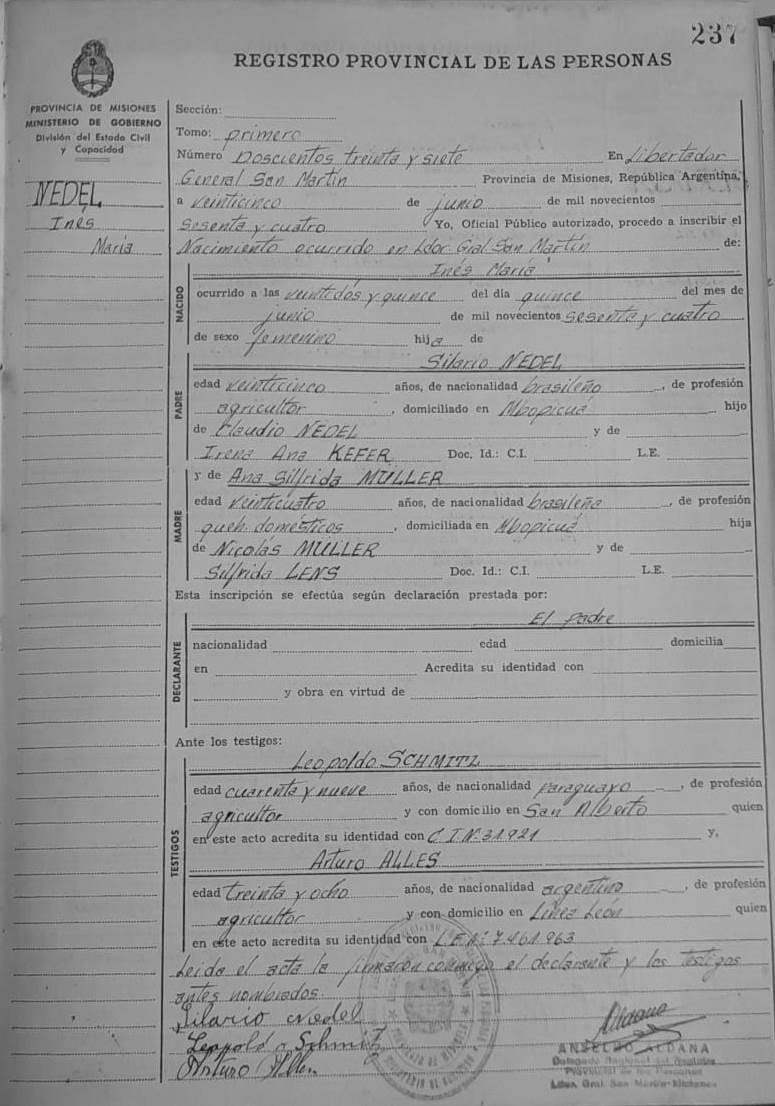 237
REGISTRO PROVINCIAL DE LAS PERSONAS
PROVINCIA DE MISIONES
MINISTERIO DE GOBIERNO
División del Estado Civil
y Capacidad
NEDEL
Inés
María
Sección:
Tomo: primero
Número Doscientos treinta y siete En Libertador
General San Martín Provincia de Misiones, República Argentina,
a veinticinco de junio de mil novecientos
sesenta y cuatro Yo, Oficial Público autorizado, procedo a inscribir el
Nacimiento ocurrido en Ldor Gral San Martín de:
NACIDO
Inés María
ocurrido a las veintidós y quince del día quince del mes de
junio de mil novecientos sesenta y cuatro
de sexo femenino hija de
PADRE
Silario NEDEL
edad veinticinco años, de nacionalidad brasileño, de profesión
agricultor, domiciliado en Mbopicuá hijo
de Claudio NEDEL y de
Irena Ana KEFER Doc. Id.: C.I. L.E.
MADRE
y de Ana Silfrida MÜLLER
edad veinticuatro años, de nacionalidad brasileña, de profesión
queh. domésticos, domiciliada en Mbopicuá hija
de Nicolás MÜLLER y de
Silfrida LENS Doc. Id.: C.I. L.E.
Esta inscripción se efectúa según declaración prestada por:
El padre
DECLARANTE
nacionalidad edad domicilia
en Acredita su identidad con
y obra en virtud de
Ante los testigos:
TESTIGOS
Leopoldo SCHMITZ
edad cuarenta y nueve años, de nacionalidad paraguayo, de profesión
agricultor y con domicilio en San Alberto quien
en este acto acredita su identidad con C.I.Nº: 31.921 y,
Arturo ALLES
edad treinta y ocho años, de nacionalidad argentino, de profesión
agricultor y con domicilio en Línea León quien
en este acto acredita su identidad con L.E.Nº: 7.461.963
Leída el acta la firmaron conmigo el declarante y los testigos
antes nombrados.
Silario Nedel
Leopoldo Schmitz
Arturo Alles
Aldana
ANSELMO ALDANA
Delegado Regional del Registro
Provincial de las Personas
Ldor. Gral San Martín-Misiones